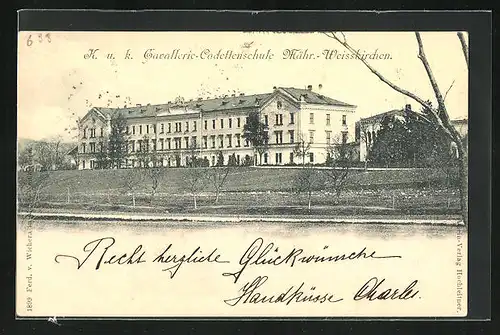 633
K. u. k. Cavallerie-Cadettenschule Mähr.-Weisskirchen.
Recht herzliche Glückwünsche
Handküsse Charles.
1899 Ferd. v. Wieheras
Verlag Hochleitner.